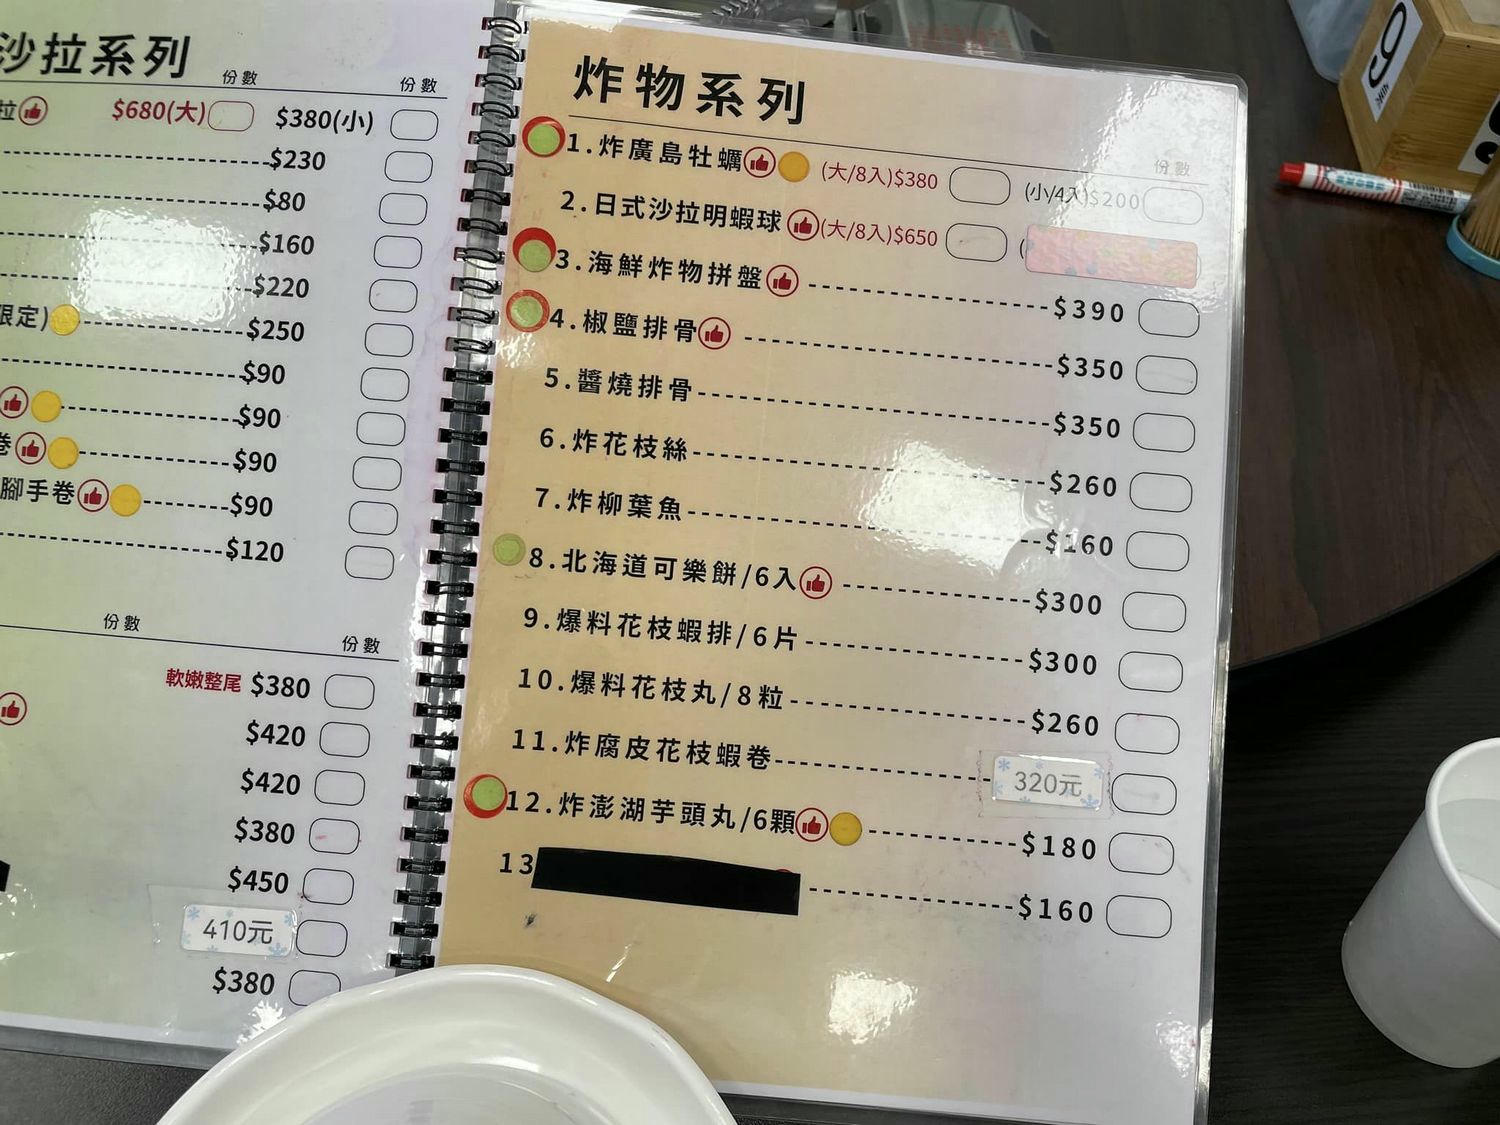 沙拉系列
份數
份數
拉 $680(大) $380(小)
$230
$80
$160
$220
限定) $250
$90
$90
卷 $90
腳手卷 $90
$120
份數
份數
軟嫩整尾 $380
$420
$420
$380
$450
410元
$380
炸物系列
份數
1.炸廣島牡蠣 (大/8入)$380 (小/4入)$200
2.日式沙拉明蝦球 (大/8入)$650 (
3.海鮮炸物拼盤 $390
4.椒鹽排骨 $350
5.醬燒排骨 $350
6.炸花枝絲 $260
7.炸柳葉魚 $160
8.北海道可樂餅/6入 $300
9.爆料花枝蝦排/6片 $300
10.爆料花枝丸/8粒 $260
11.炸腐皮花枝蝦卷 320元
12.炸澎湖芋頭丸/6顆 $180
13 $160
9